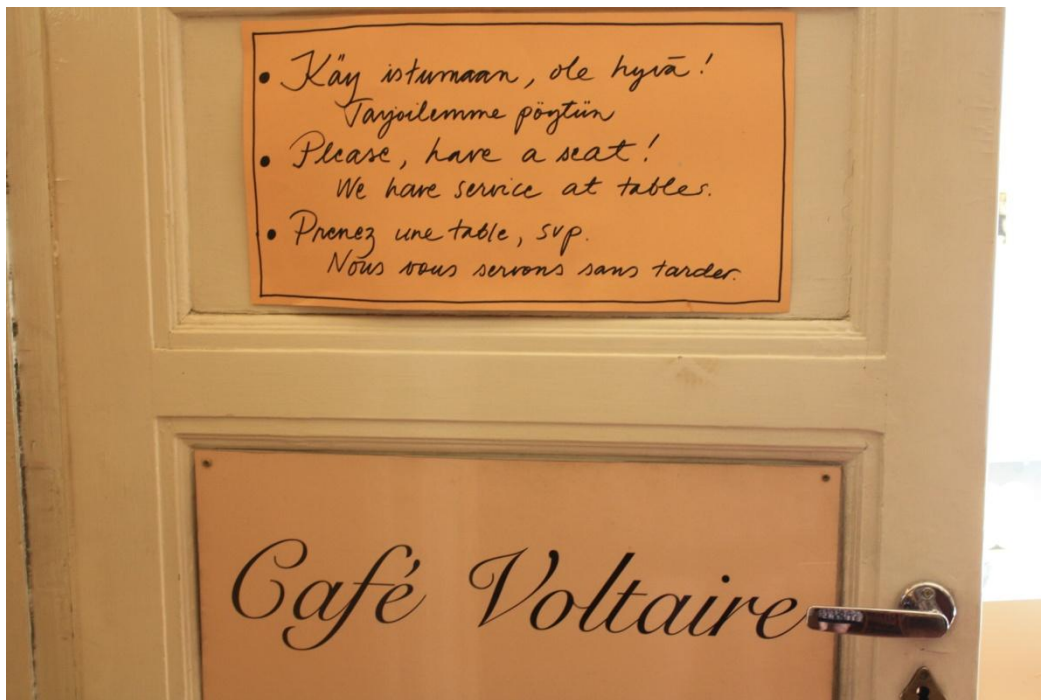 • Käy istumaan, ole hyvä!
Tarjoilemme pöytiin
• Please, have a seat!
We have service at tables.
• Prenez une table, svp.
Nous vous servons sans tarder.
Café Voltaire